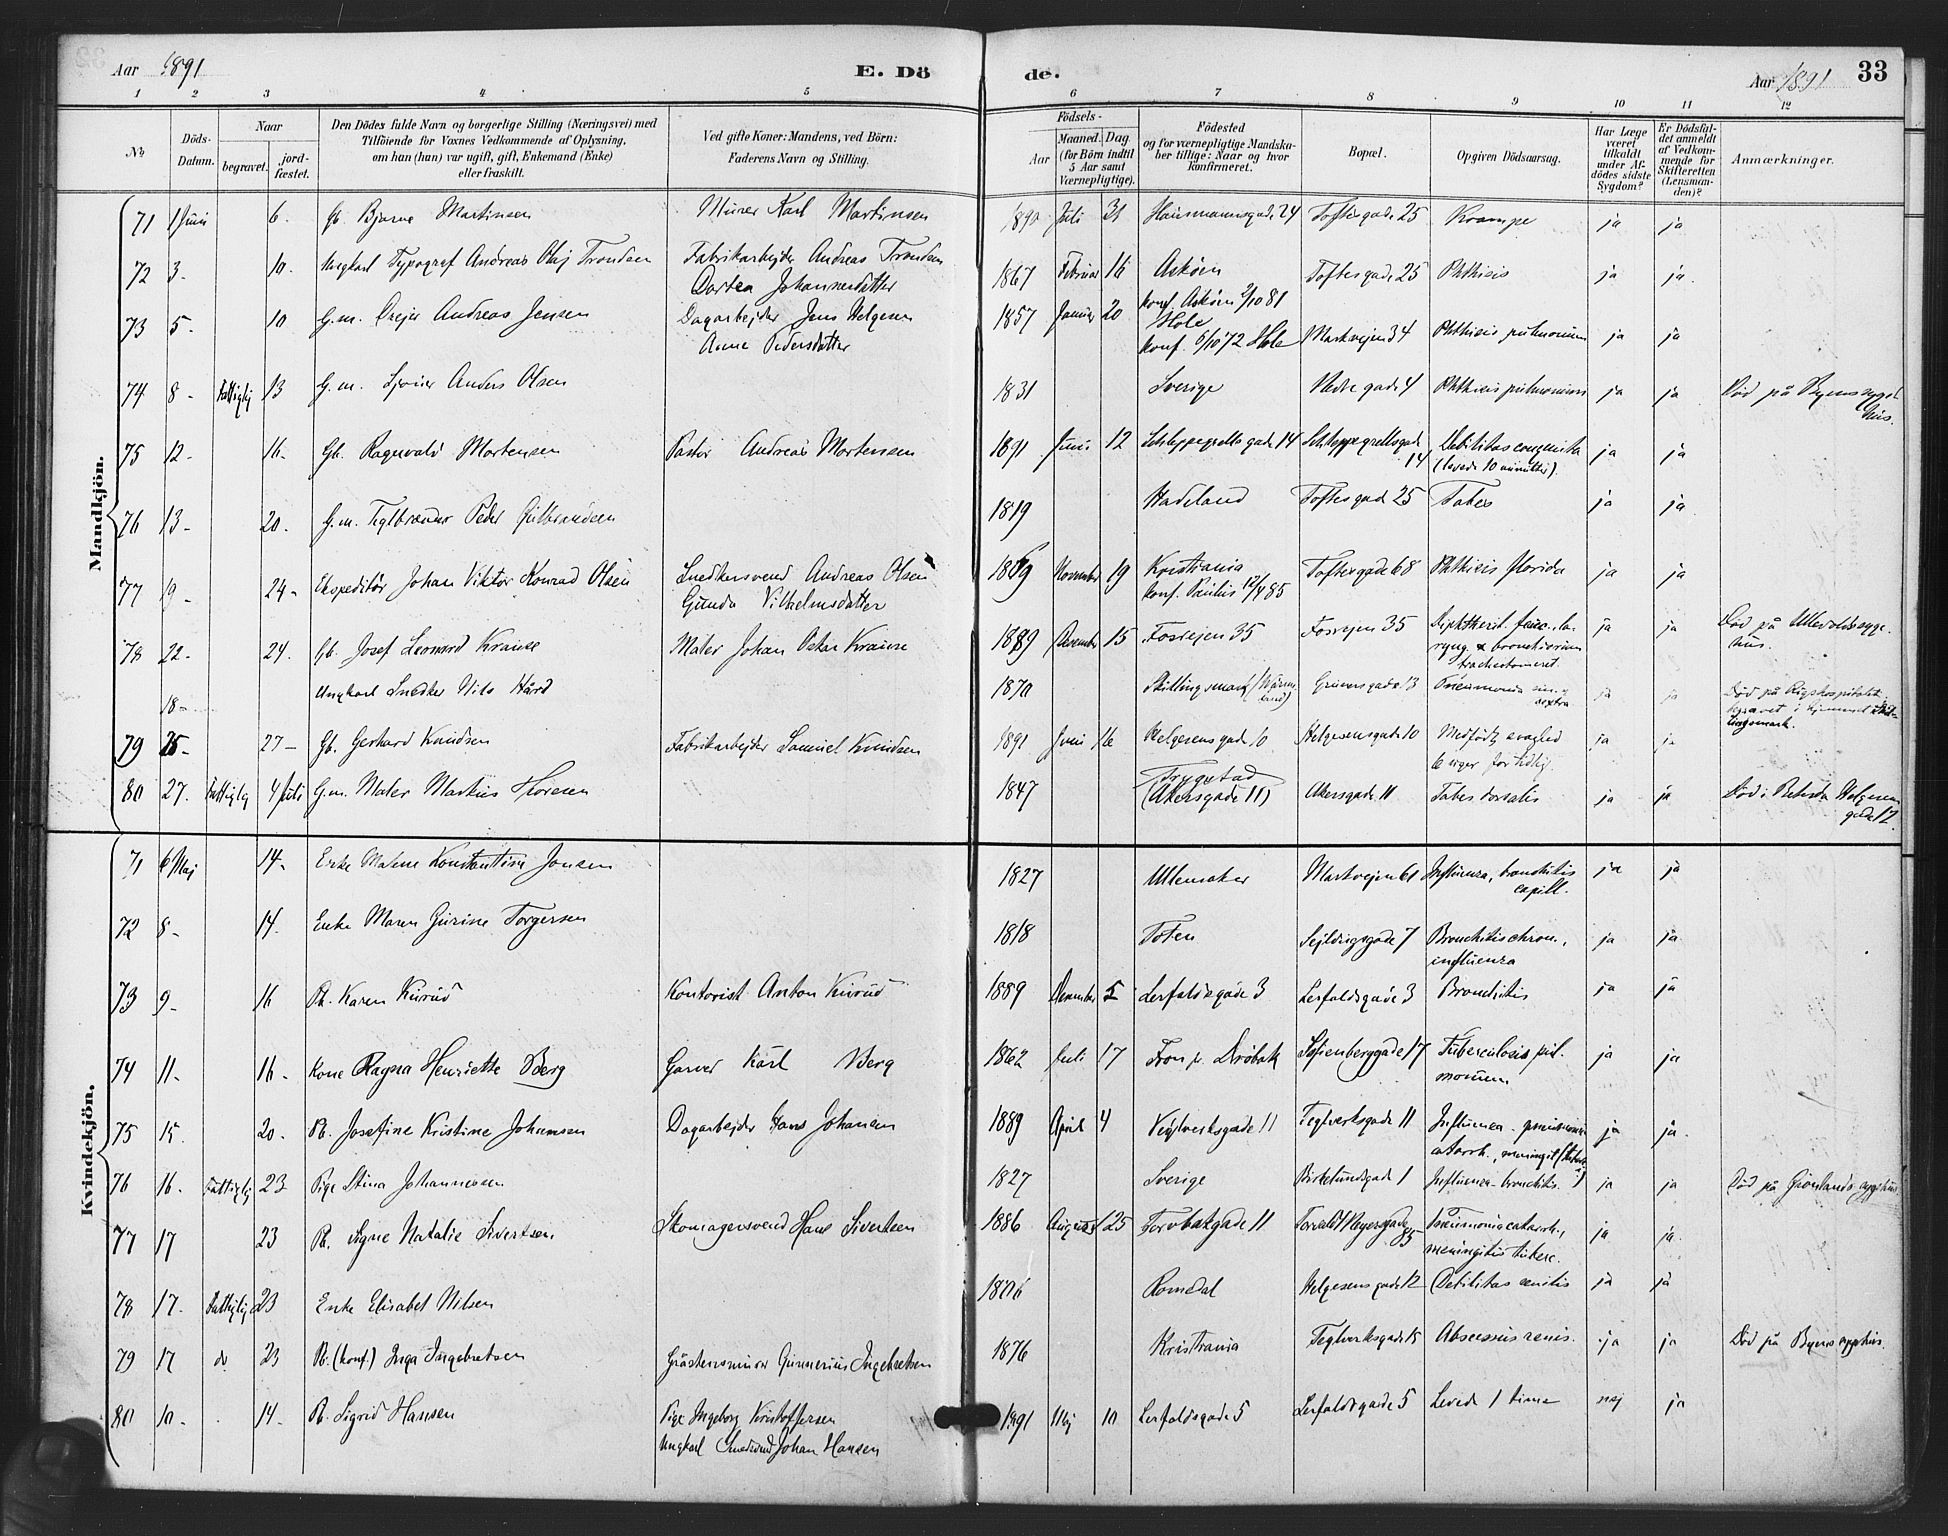 Aar 1891 E. Dö de. Aar 1891 33
1 2 3 4 5 6 7 8 9 10 11 12
No Döds-Datum. Naar begravet. jordfæstet. Den Dödes fulde Navn og borgerlige Stilling (Næringsvei) med Tilföiende for Voxnes Vedkommende af Oplysning, om han (hun) var ugift, gift, Enkemand (Enke) eller fraskilt. Ved gifte Koner: Mandens, ved Börn: Faderens Navn og Stilling. Födsels- Aar Maaned. Dag. (for Börn indtil 5 Aar samt Værnepligtige). Födested og for værnepligtige Mandskaber tillige: Naar og hvor konfirmeret. Bopæl. Opgiven Dödsaarsag. Har Læge været tilkaldt under Afdödes sidste Sygdom? Er Dödsfaldet anmeldt af Vedkommende for Skifteretten (Lensmanden)? Anmærkninger.
Mandkjön.
71 1 Juni 6. Gb. Bjarne Martinsen Murer Karl Martinsen 1890 Juli 31 Hausmannsgade 24 Toftesgade 25 Krampe ja ja
72 3. 10. Ungkarl Typograf Andreas Olaj Trondsen Fabrikarbejder Andreas Trondsen 1867 Februar 16 Askim Toftesgade 25 Phthisis ja ja.
Dortea Johannesdatter konf. Askim 2/10 81
73 5. 10 G.m. Drejer Andreas Jensen Dagarbejder Jens Helgesen 1857 Januar 20 Hole Markvejen 34 Phthisis pulmonum ja ja
Anne Pedersdatter konf. 6/10 72 Hole
74 8 - Fattiglig 13 G.m. Anders Olsen 1831 Sverige Nedregade 4 Phthisis pulmonum ja ja Död på Byens syge
hus.
75 12 - 16 - Gb. Ragnvald Mortensen Pastor Andreas Mortensen 1891 Juni 12 Schleppegrells gade 14 Schleppegrellsgade 14 Debilitas congenita ja ja
(levede 10 minutter).
76 13 - 20. G.m. Teglbrænder Peder Gulbrandsen 1819 Hadeland Toftesgade 25 Tabes ja ja.
77 19 - 24 - Ekspeditör Johan Viktor Konrad Olsen Snedkersvend Andreas Olsen 1869 November 19 Kristiania Toftesgade 68 Phthisis florida ja ja
Gunda Vilhelmsdatter konf. Paulus 12/4 85
78 22 - 24. Gb. Josef Leonard Krause Maler Johan Oskar Krause 1889 December 15 Fosvejen 35 Fosvejen 35 Diphtherit. fauc. la- ja ja Död på Ullevolds syge-
ryng. & bronchiorum hus.
tracheotomeret
18 - Ungkarl Snedker Nils Hård 1870 Skillingsmark (Värmland) Grünersgade 13 Pneumonia ja ja Död på Rigshospitalet
dextra begravet i hjemmet Skil-
lingsmark.
79 25 - 27 - Gb. Gerhard Knudsen Fabrikarbejder Samuel Knudsen 1891 Juni 16 Helgesensgade 10 Helgesensgade 10 Medfödt svaghed ja ja
6 uger for tidlig.
80 27. Fattiglig 4 Juli G.m. Maler Markus Thoresen 1847 Trygstad Akersgade 11 Tabes dorsalis ja ja Död i Betesda Helgesens
(Akersgade 11) gade 12.
Kvindekjön.
71 6 Maj 14 - Enke Malene Konstantine Jonsen 1827 Ullensaker Markvejen 61 Influenza, bronchitis ja ja
capill.
72 8 - 14. Enke Maren Gurine Torgersen 1818 Toten Sejldugsgade 7 Bronchitis chron., ja ja
influenza
73 9 - 16 Pb. Karen Kurud Kontorist Anton Kurud 1889 December 5 Lerfaldsgade 3 Lerfaldsgade 3 Bronchitis ja ja
74 11 - 16 - Kone Ragna Henriette Berg Garver Karl Berg 1862 Juli 17 Fron pr. Dröbak Sofienberggade 17 Tuberculosis pul- ja ja
monum
75 15. 20. Pb. Josefine Kristine Johansen Dagarbejder Hans Johansen 1889 April 4 Teglverksgade 11 Teglverksgade 11 Influenza - pneumonia ja ja.
catarrh., meningit
76 16. Fattiglig 23 Pige Stina Johannesen 1827 Sverige Birkelundsgade 1 Influenza - bronchitis. ja ja Död på Grönlands sygehus.
77 17 23 Pb. Signe Natalie Sivertsen Skomagersvend Hans Sivertsen 1886 August 25 Torvbakgade 11 Torvald Meyersgade 85 Pneumonia catarrh., ja ja.
meningitis tuberc.
78 17. Fattiglig 23 Enke Elisabet Nilsen Romedal Helgesensgade 12 Debilitas senilis ja ja
79 17 do 23 Pb. (konf.) Inga Ingebretsen Gråstensmurer Gunnerius Ingebretsen 1876 Kristiania Teglverksgade 15 Abscessus renis. ja ja Död på Byens sygehus.
80 10 - 14 - Pb. Sigrid Hansen Pige Ingeborg Kristoffersen 1891 Maj 10 Lerfaldsgade 5 Lerfaldsgade 5 Levede 1 time nej ja
Ungkarl Smedsvend Johan Hansen